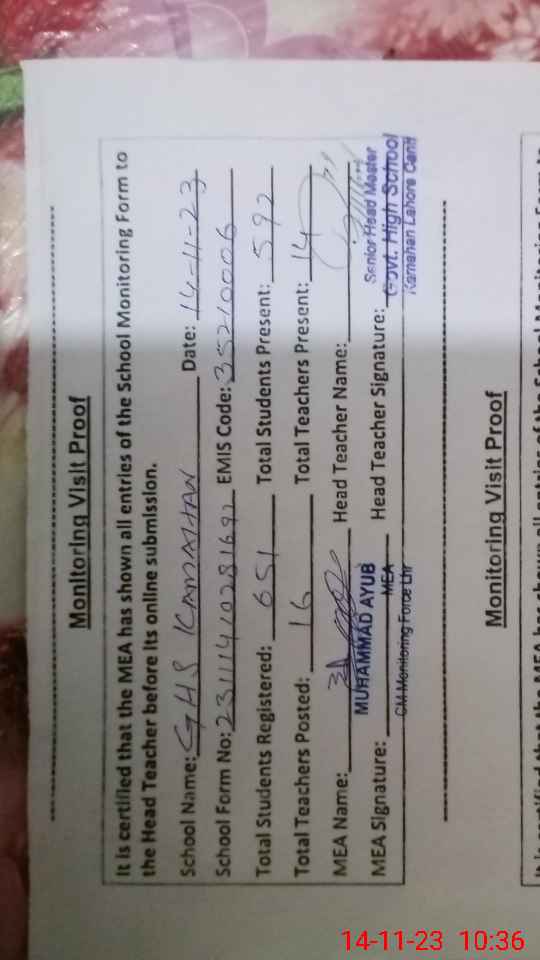 Monitoring Visit Proof
It is certified that the MEA has shown all entries of the School Monitoring Form to
the Head Teacher before its online submission.
School Name: GHS KAMAHAN Date: 14-11-23
School Form No: 231114102816 EMIS Code: 35210006
Total Students Registered: 651 Total Students Present: 592
Total Teachers Posted: 16 Total Teachers Present: 14
MEA Name: Head Teacher Name:
MUHAMMAD AYUB
MEA
CM Monitoring Force Lhr
MEA Signature: Head Teacher Signature:
Senior Head Master
Govt. High School
Kamahan Lahore Cantt
Monitoring Visit Proof
14-11-23 10:36